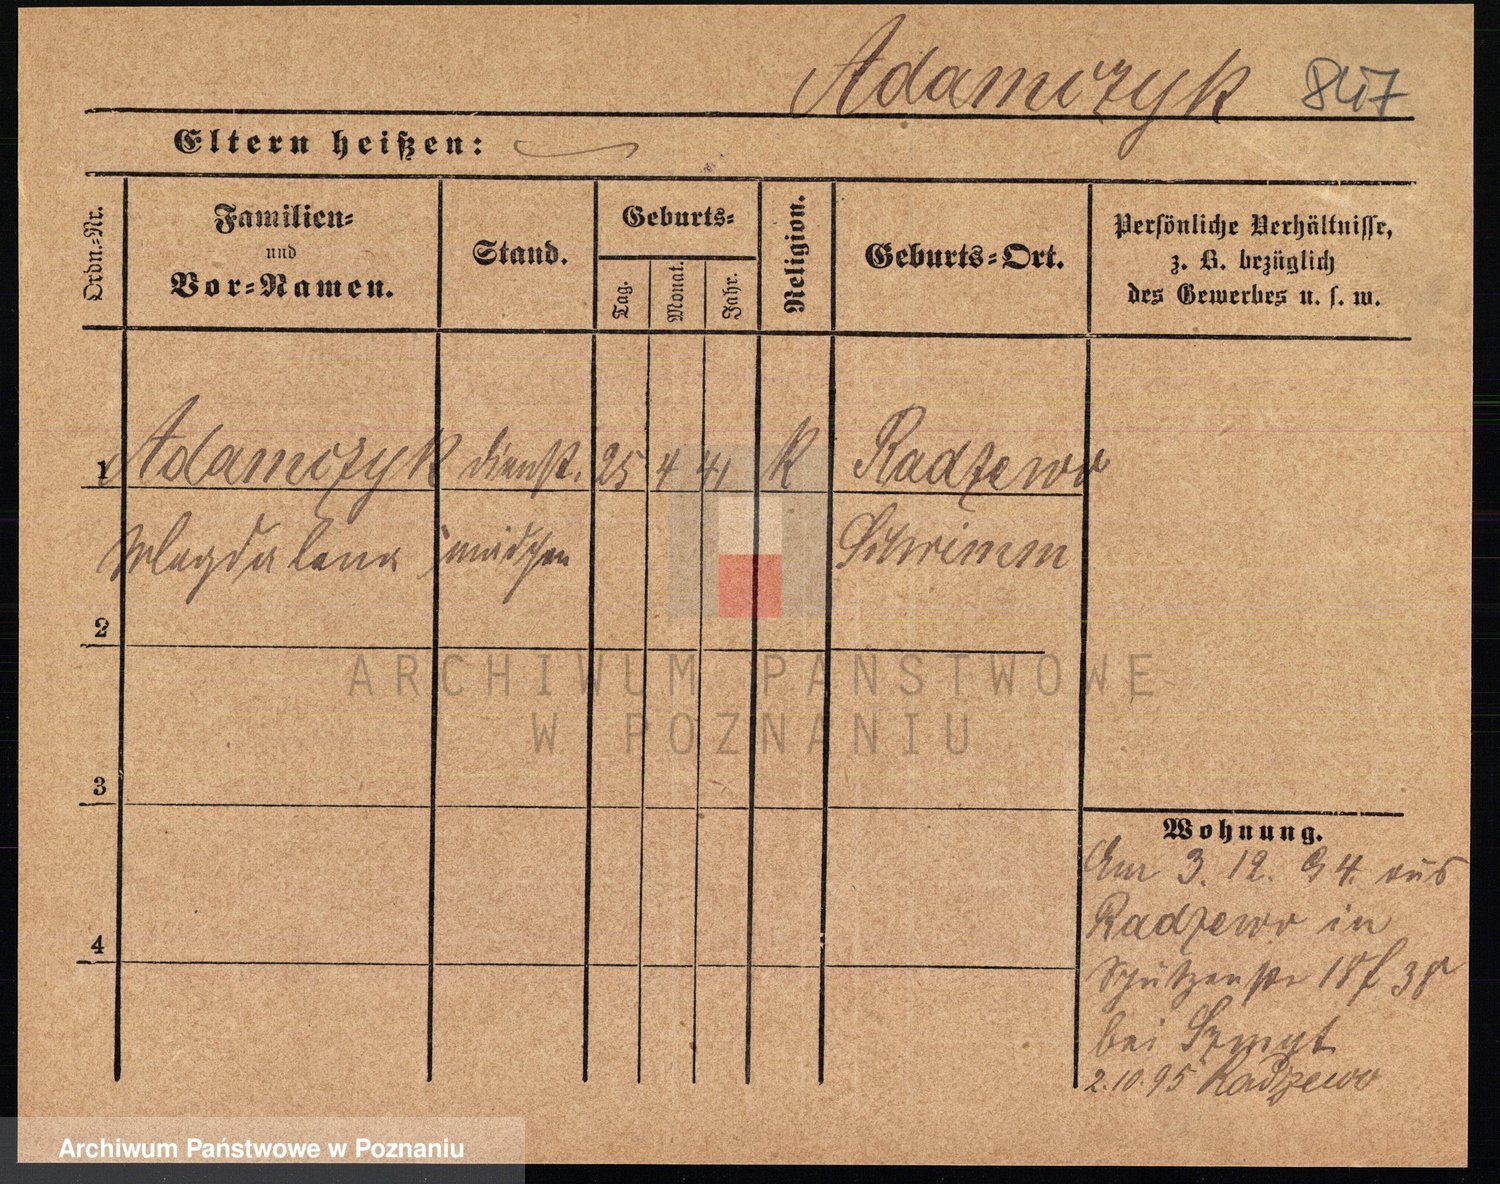 Adamczyk 847
Eltern heißen:
Ordn.-Nr.
Familien-
und
Vor-Namen.
Stand.
Geburts-
Tag.
Monat.
Jahr.
Religion.
Geburts-Ort.
Persönliche Verhältnisse,
z. B. bezüglich
des Gewerbes u. s. w.
1 Adamczyk dienst. 25 4 41 K Radzewo
Magdalena mädchen Schrimm
2
3
4
Wohnung.
Am 3. 12. 94. aus
Radzewo in
Schützenstr 18
bei Szmyt
2.10.95 Radzewo
ARCHIWUM PAŃSTWOWE
W POZNANIU
Archiwum Państwowe w Poznaniu